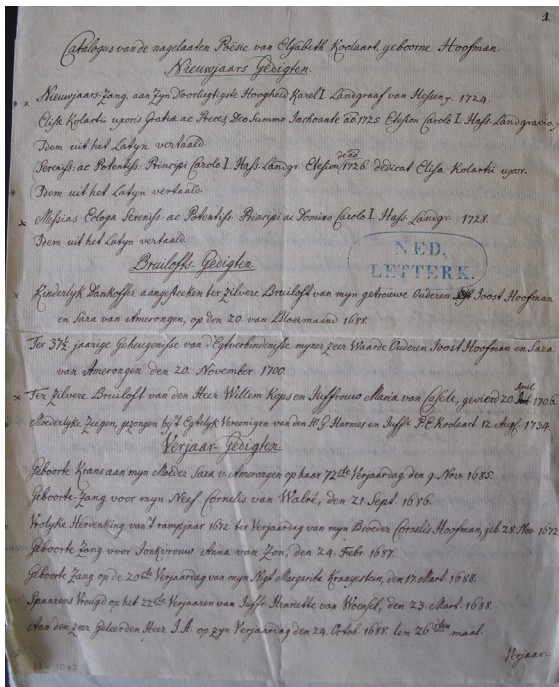 1
Catalogus van de nagelaaten Poësie van Elysabeth Koolaart, geboorne Hoofman.
Nieuwjaars Gedigten.
x Nieuwjaars-Zang, aan Zyn Doorlugtigste Hoogheid Karel I. Landgraaf van Hessen, 1724.
Elisæ Kolartii uxoris Gratiæ ac Preces Deo Summo Inchoante ao. 1725 Etesion Carolo I. Hass. Landgravio,
Idem uit het Latyn vertaald.
Sereniss. ac Potentiss. Principi Carolo I. Hass. Landgr. Etesion 1726. dedicat Elisa Kolartii uxor.
Idem uit het Latyn vertaald.
x Messias Ecloga Sereniss. ac Potentiss. Principi ac Domino Carolo I. Hass. Landgr. 1728.
Idem uit het Latyn vertaald.
NED.
LETTERK.
Bruilofts-Gedigten.
x Kinderlyk Dankoffer aangesteeken ter zilvere Bruiloft van myn getrouwe Ouderen Joost Hoofman
en Sara van Amerongen, op den 20 van Bloeimaand 1688.
Ter 37½ jaarige Geheugenisse van d'Egtverbindenisse myner zeer Waarde Ouderen Joost Hoofman en Sara
van Amerongen den 20. November 1700.
x Ter Zilvere Bruiloft van den Heer Willem Kops en Juffrouw Maria van Casele, gevierd 20. April 1706.
Moederlyke Zeegen, gezongen by 't Egtelyk Vereenigen van den Hr. G. Harmes en Juffr. P. E. Koolaart. 12. Augs. 1734.
Verjaar-Gedigten.
Geboorte Krans aan myn Moeder Sara v. Amerongen op haar 72ste Verjaardag den 9. Nov. 1685.
Geboorte-Zang voor myn Neef Cornelis van Walré, den 21. Sept. 1686.
Vrolyke Herdenking van 't rampjaar 1672. ter Verjaardag van myn Broeder Cornelis Hoofman, geb. 28. Nov. 1672
Geboorte Zang voor Jonkvrouw Anna van Zon, den 24. Febr. 1687.
Geboorte Zang op de 20ste Verjaardag van myn Nigt Margarite Kraajestein, den 17. Mart. 1688.
Spaarens Vreugd op het 22ste Verjaaren van Juffr. Henriette van Woensel, den 23. Mart. 1688.
Aan den zeer Geleerden Heer I. A. op zyn Verjaardag den 24. Octob. 1688. ten 26sten maal.
Verjaar-